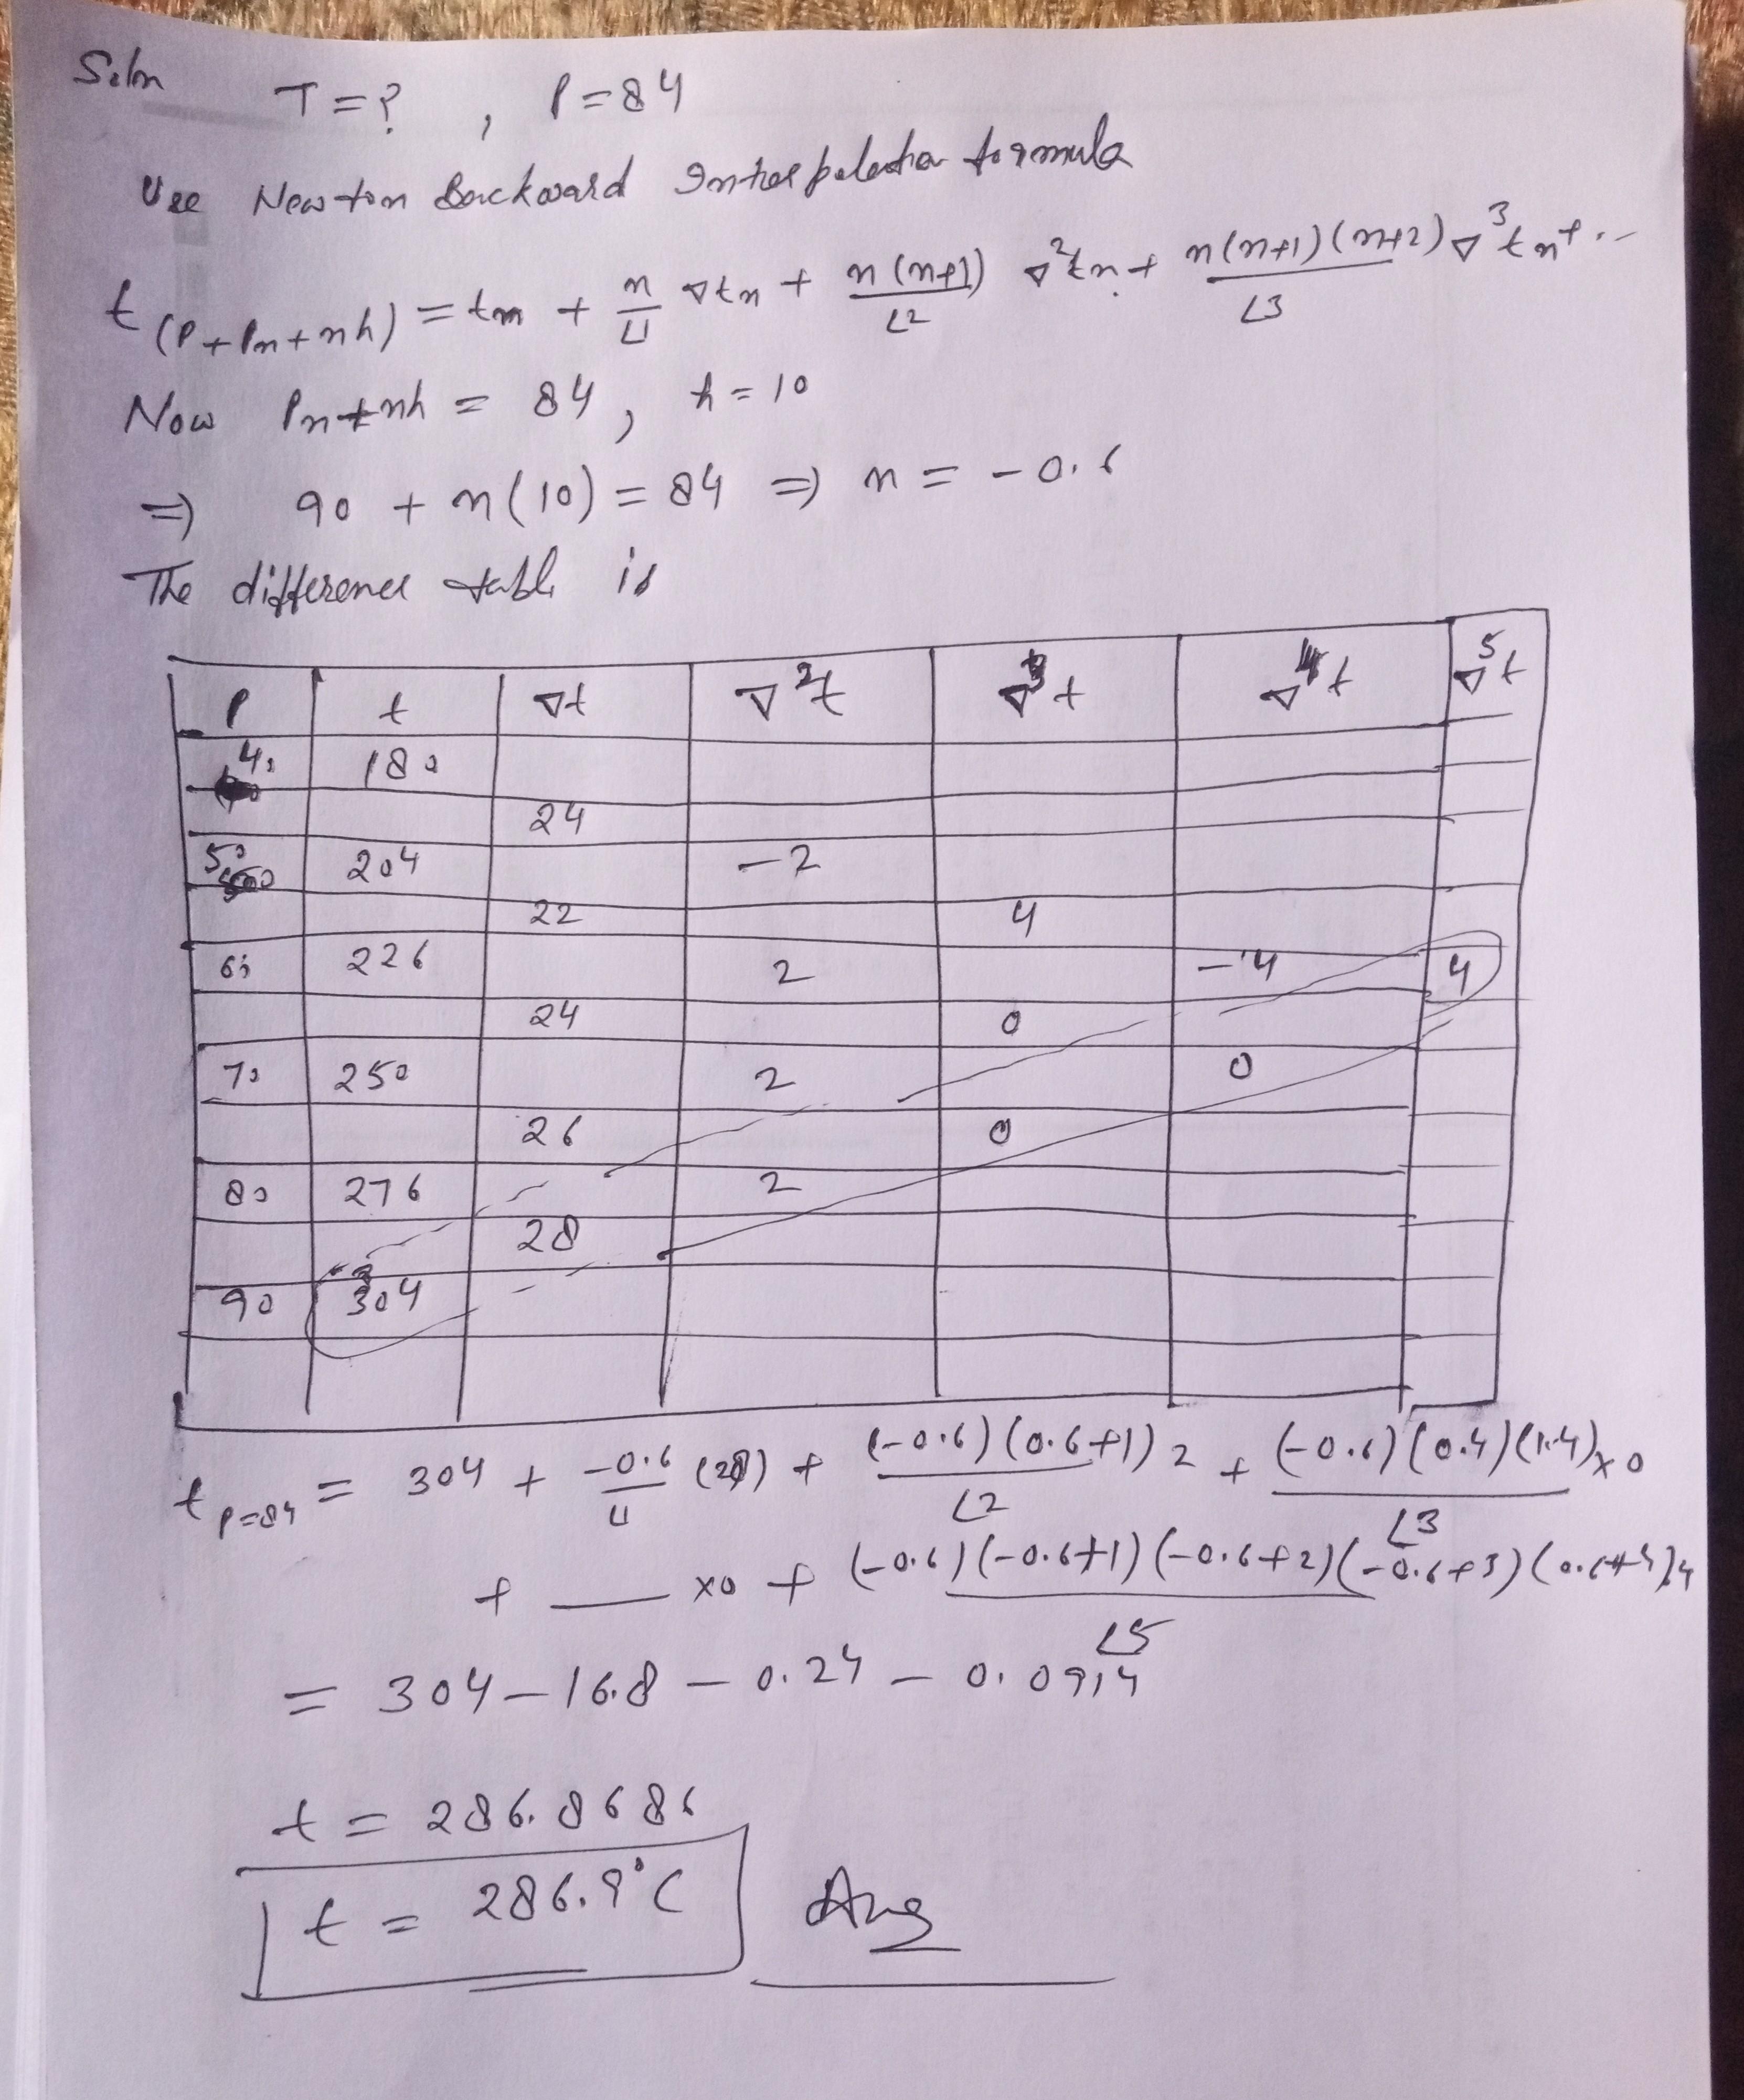 Soln T = ? , P = 84
Use Newton Backward Interpolation formula
t(P+Pn+nh) = tn + n/∟1 ∇tn + n(n+1)/∟2 ∇²tn + n(n+1)(n+2)/∟3 ∇³tn + ..
Now Pn+nh = 84 , h = 10
⇒ 90 + n(10) = 84 ⇒ n = -0.6
The difference table is
P t ∇t ∇²t ∇³t ∇⁴t ∇⁵t
40 180
24
50 204 -2
22 4
60 226 2 -4 4
24 0
70 250 2 0
26 0
80 276 2
28
90 304
t P=84 = 304 + -0.6/∟1 (28) + (-0.6)(0.6+1)/∟2 2 + (-0.6)(0.4)(1.4)/∟3 ×0
+ — ×0 + (-0.6)(-0.6+1)(-0.6+2)(-0.6+3)(0.6+4)4/∟5
= 304 - 16.8 - 0.24 - 0.0914
t = 286.8686
t = 286.9°C Ans